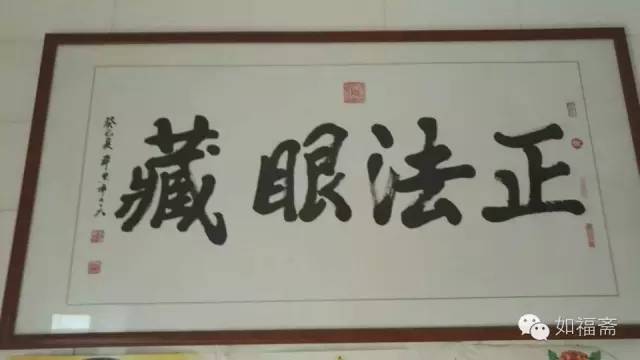 正法眼藏
癸巳夏
如福斋